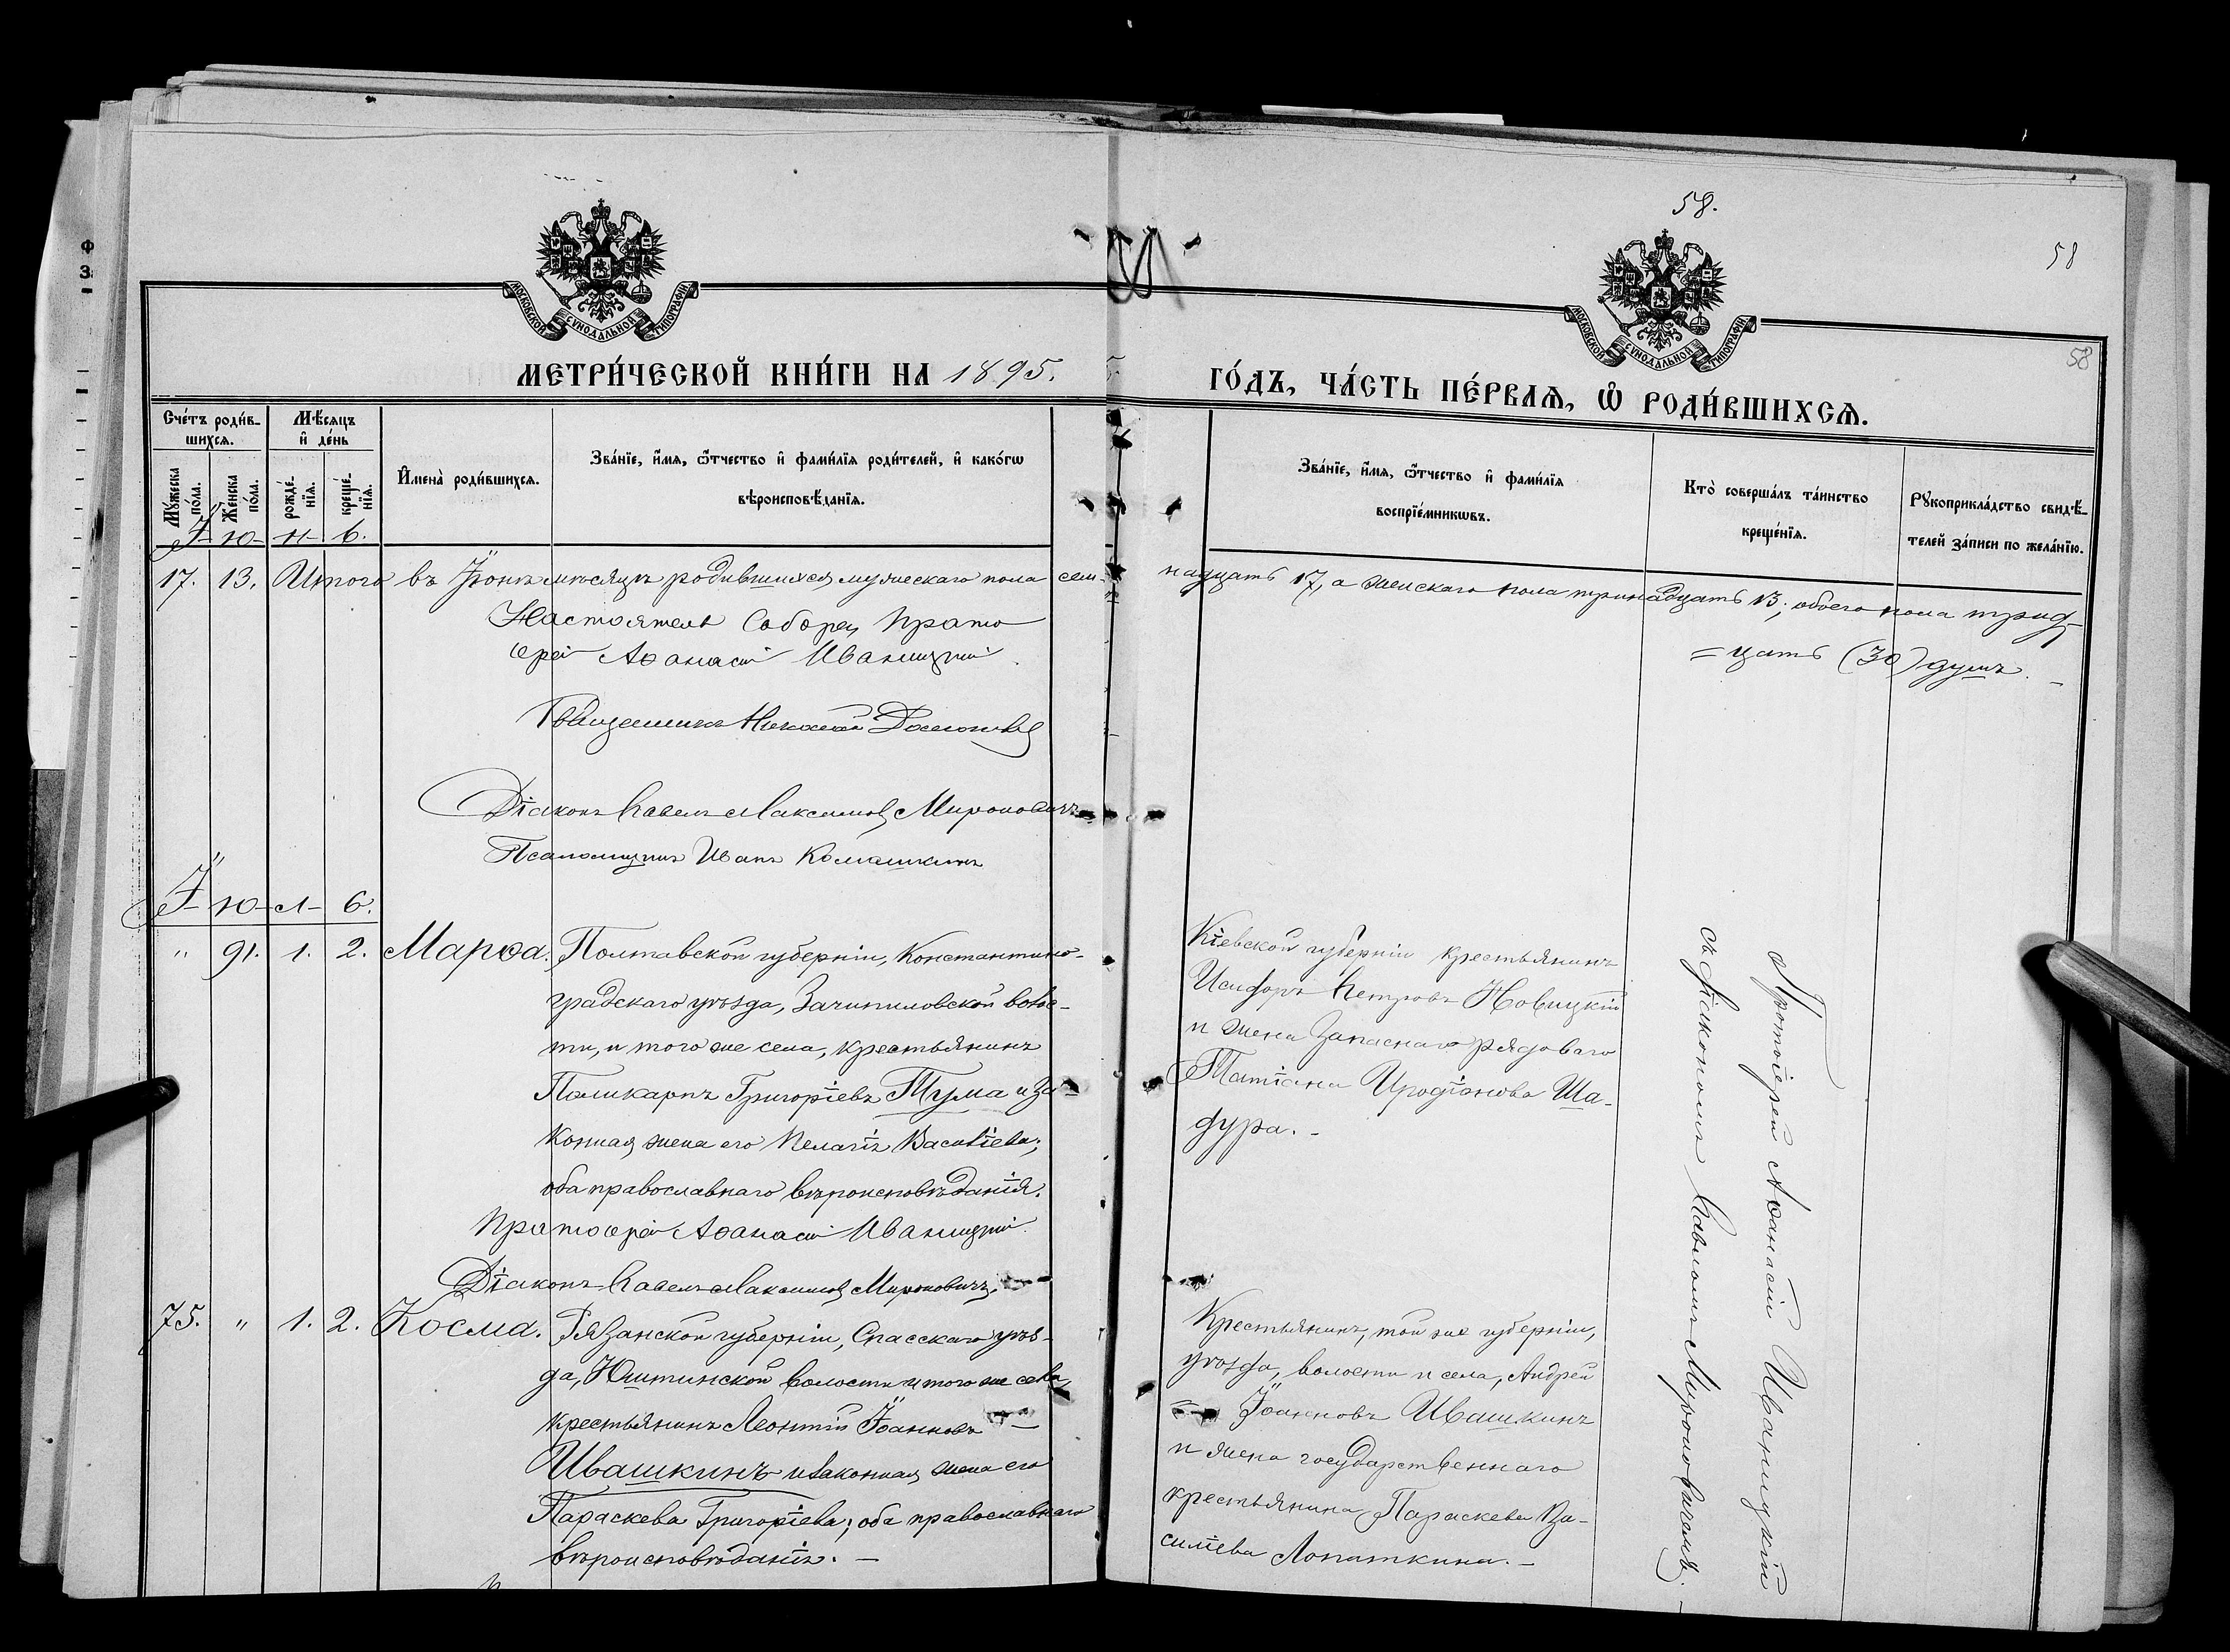 58.
58
58
МОСКОВСКОЙ СѴНОДАЛЬНОЙ ТИПОГРАФІИ
МОСКОВСКОЙ СѴНОДАЛЬНОЙ ТИПОГРАФІИ
МЕТРИ́ЧЕСКОЙ КНИ́ГИ НА 1895.
ГО́ДЪ, ЧА́СТЬ ПЕ́РВАѦ, Ѽ РОДИ́ВШИХСѦ.
Сче́тъ роди́в-
шихсѧ.
Мѣ́сѧцъ
и҆ де́нь
Мꙋ́жеска
по́ла.
Же́нска
по́ла.
рожде́-
нїѧ.
креще́-
нїѧ.
И҆мена̀ роди́вшихсѧ.
Зва́нїе, и҆́мѧ, ѻ҆́тчество и҆ фами́лїѧ роди́телей, и҆ како́гѡ
вѣроисповѣ́данїѧ.
Зва́нїе, и҆́мѧ, ѻ҆́тчество и҆ фами́лїѧ
воспрїе́мникѡвъ.
Кто̀ соверша́лъ та́инство
креще́нїѧ.
Рꙋкоприкла́дство свидѣ́-
телей за́писи по жела́нїю.
І- ю- н- ь.
17. 13. Итого въ Іюнѣ мѣсяцѣ родившихся мужескаго пола сем-
надцать 17, а женскаго пола тринадцать 13; обоего пола трид-
=цать (30) душъ. -
Настоятель Собора Прото
іерей Аѳанасій Иваницкій
Священникъ Николай
Діаконъ Павелъ Максимовъ Мироновичъ
Псаломщикъ Иванъ Комашкинъ
І- ю- л- ь.
" 91. 1. 2. Марѳа. Полтавской губерніи, Константино-
градскаго уѣзда, Зачепиловской волос-
ти, и того же села, крестьянинъ
Поликарпъ Григоріевъ Тума и за-
конная жена его Пелагія Василіева;
оба православнаго вѣроисповѣданія.
Протоіерей Аѳанасій Иваницкій
Діаконъ Павелъ Максимовъ Мироновичъ
Кіевской губерніи крестьянинъ
Исидоръ Петровъ Новицкій
и жена запаснаго рядоваго
Татіана Иродіонова Ша-
дура. -
Протоіерей Аѳанасій Иваницкій
съ діакономъ Павломъ Мироновичемъ.
75. " 1. 2. Косма. Рязанской губерніи, Спасскаго уѣз-
да, Юштинской волости и того же села,
крестьянинъ Леонтій Іоанновъ -
Ивашкинъ и законная жена его
Параскева Григоріева; оба православнаго
вѣроисповѣданія. -
Крестьянинъ, той же губерніи,
уѣзда, волости и села, Андрей
Іоанновъ Ивашкинъ
и жена государственнаго
крестьянина Параскева Ва-
силіева Лопаткина. -